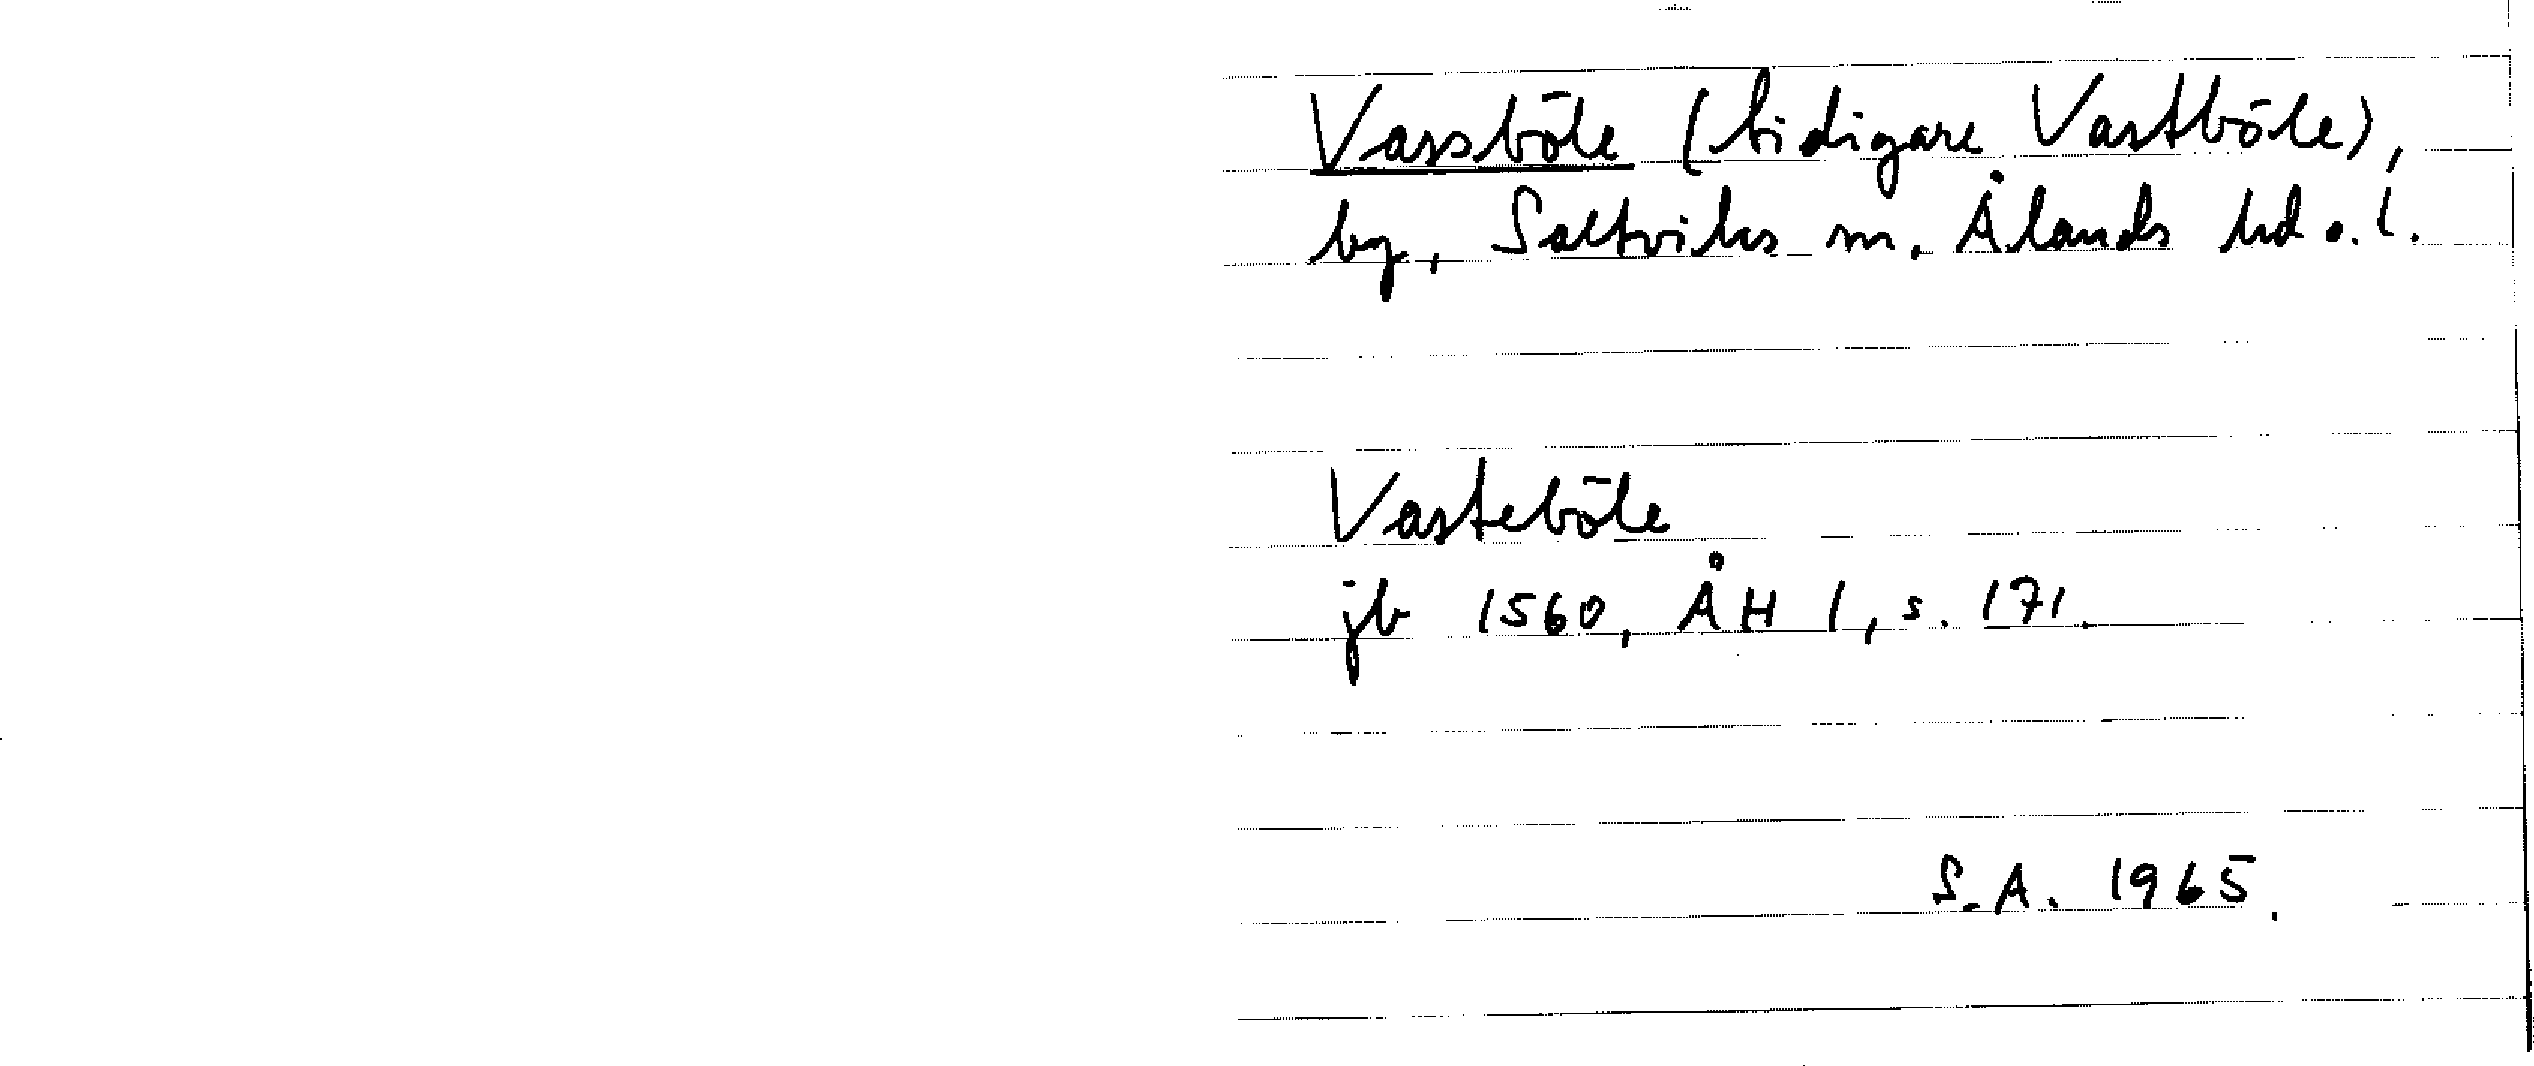 Vassböle (tidigare Vastböle),
by, Saltviks sn. Ålands hd o. l.
Vasteböle
jb 1560, ÅH 1, s. 171.
S.A. 1965.